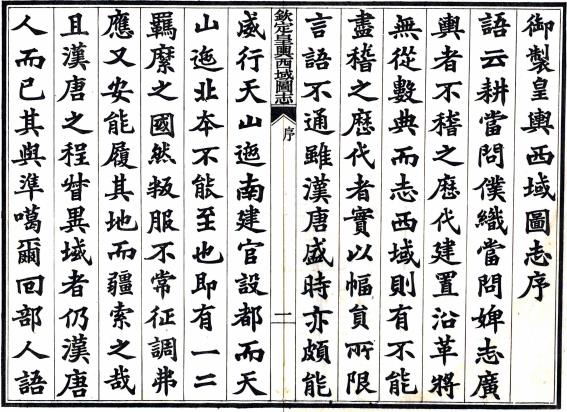 御製皇輿西域圖志序
語云耕當問僕織當問婢志廣
輿者不稽之歷代建置沿革將
無從數典而志西域則有不能
盡稽之歷代者實以幅員所限
言語不通雖漢唐盛時亦頗能
欽定皇輿西域圖志
序
二
威行天山迤南建官設都而天
山迤北本不能至也即有一二
羈縻之國然叛服不常征調弗
應又安能履其地而疆索之哉
且漢唐之程督異域者仍漢唐
人而已其與準噶爾回部人語